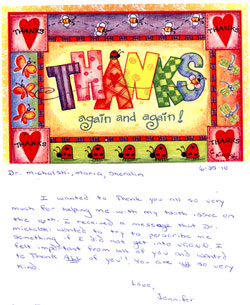 THANKS
THANKS
THANKS
again and again!
THANKS
THANKS
6-25-10
Dr. Michalski, Maria, Sheralin
I wanted to Thank you all so very
much for helping me with my tooth issue on
the 4th. I received a message that Dr.
Michalski wanted to try to perscribe me
something if I did not get into UCONN. I
felt important from all of you and wanted
to Thank ALL of you! You are all so very
kind.
Love,
Jennifer